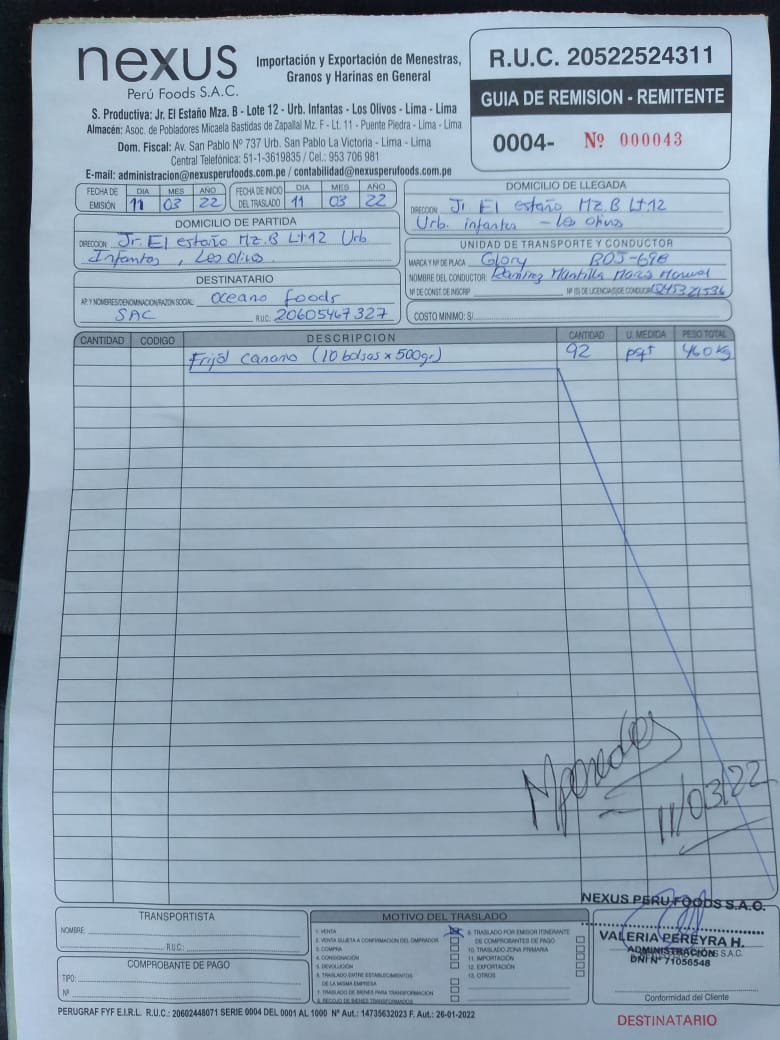 nexus
Perú Foods S.A.C.
Importación y Exportación de Menestras,
Granos y Harinas en General
S. Productiva: Jr. El Estaño Mza. B - Lote 12 - Urb. Infantas - Los Olivos - Lima - Lima
Almacén: Asoc. de Pobladores Micaela Bastidas de Zapallal Mz. F - Lt. 11 - Puente Piedra - Lima - Lima
Dom. Fiscal: Av. San Pablo Nº 737 Urb. San Pablo La Victoria - Lima - Lima
Central Telefónica: 51-1-3619835 / Cel.: 953 706 981
E-mail: administracion@nexusperufoods.com.pe / contabilidad@nexusperufoods.com.pe
R.U.C. 20522524311
GUIA DE REMISION - REMITENTE
0004- Nº 000043
FECHA DE EMISIÓN DIA MES AÑO 11 03 22
FECHA DE INICIO DEL TRASLADO DIA MES AÑO 11 03 22
DOMICILIO DE PARTIDA
DIRECCION Jr. El estaño Mz.B Lt12 Urb
Infantas, Los olivos.
DOMICILIO DE LLEGADA
DIRECCION Jr. El estaño Mz.B Lt12
Urb. infantas - Los olivos
DESTINATARIO
AP. Y NOMBRES/DENOMINACION/RAZON SOCIAL: Oceano foods
SAC R.U.C: 20605467327
UNIDAD DE TRANSPORTE Y CONDUCTOR
MARCA Y Nº DE PLACA Glory
NOMBRE DEL CONDUCTOR: Ramirez Mantilla
Nº DE CONST. DE INSCRIP. Nº (S) DE LICENCIA(S) DE CONDUCIR
COSTO MINIMO: S/.
CANTIDAD CODIGO DESCRIPCION CANTIDAD U. MEDIDA PESO TOTAL
Frijol canario (10 bolsas x 500gr.) 92 pqt 460 kg
11/03/22
TRANSPORTISTA
NOMBRE:
R.U.C.:
COMPROBANTE DE PAGO
TIPO:
Nº
MOTIVO DEL TRASLADO
1. VENTA
2. VENTA SUJETA A CONFIRMACION DEL COMPRADOR
3. COMPRA
4. CONSIGNACIÓN
5. DEVOLUCIÓN
6. TRASLADO ENTRE ESTABLECIMIENTOS
DE LA MISMA EMPRESA
7. TRASLADO DE BIENES PARA TRANSFORMACION
8. RECOJO DE BIENES TRANSFORMADOS
9. TRASLADO POR EMISOR ITINERANTE
DE COMPROBANTES DE PAGO
10. TRASLADO ZONA PRIMARIA
11. IMPORTACIÓN
12. EXPORTACIÓN
13. OTROS
NEXUS PERU FOODS S.A.C.
VALERIA PEREYRA H.
ADMINISTRACIÓN
DNI Nº 71056548
Conformidad del Cliente
PERUGRAF FYF E.I.R.L. R.U.C.: 20602448071 SERIE 0004 DEL 0001 AL 1000 Nº Aut.: 14735632023 F. Aut.: 26-01-2022
DESTINATARIO